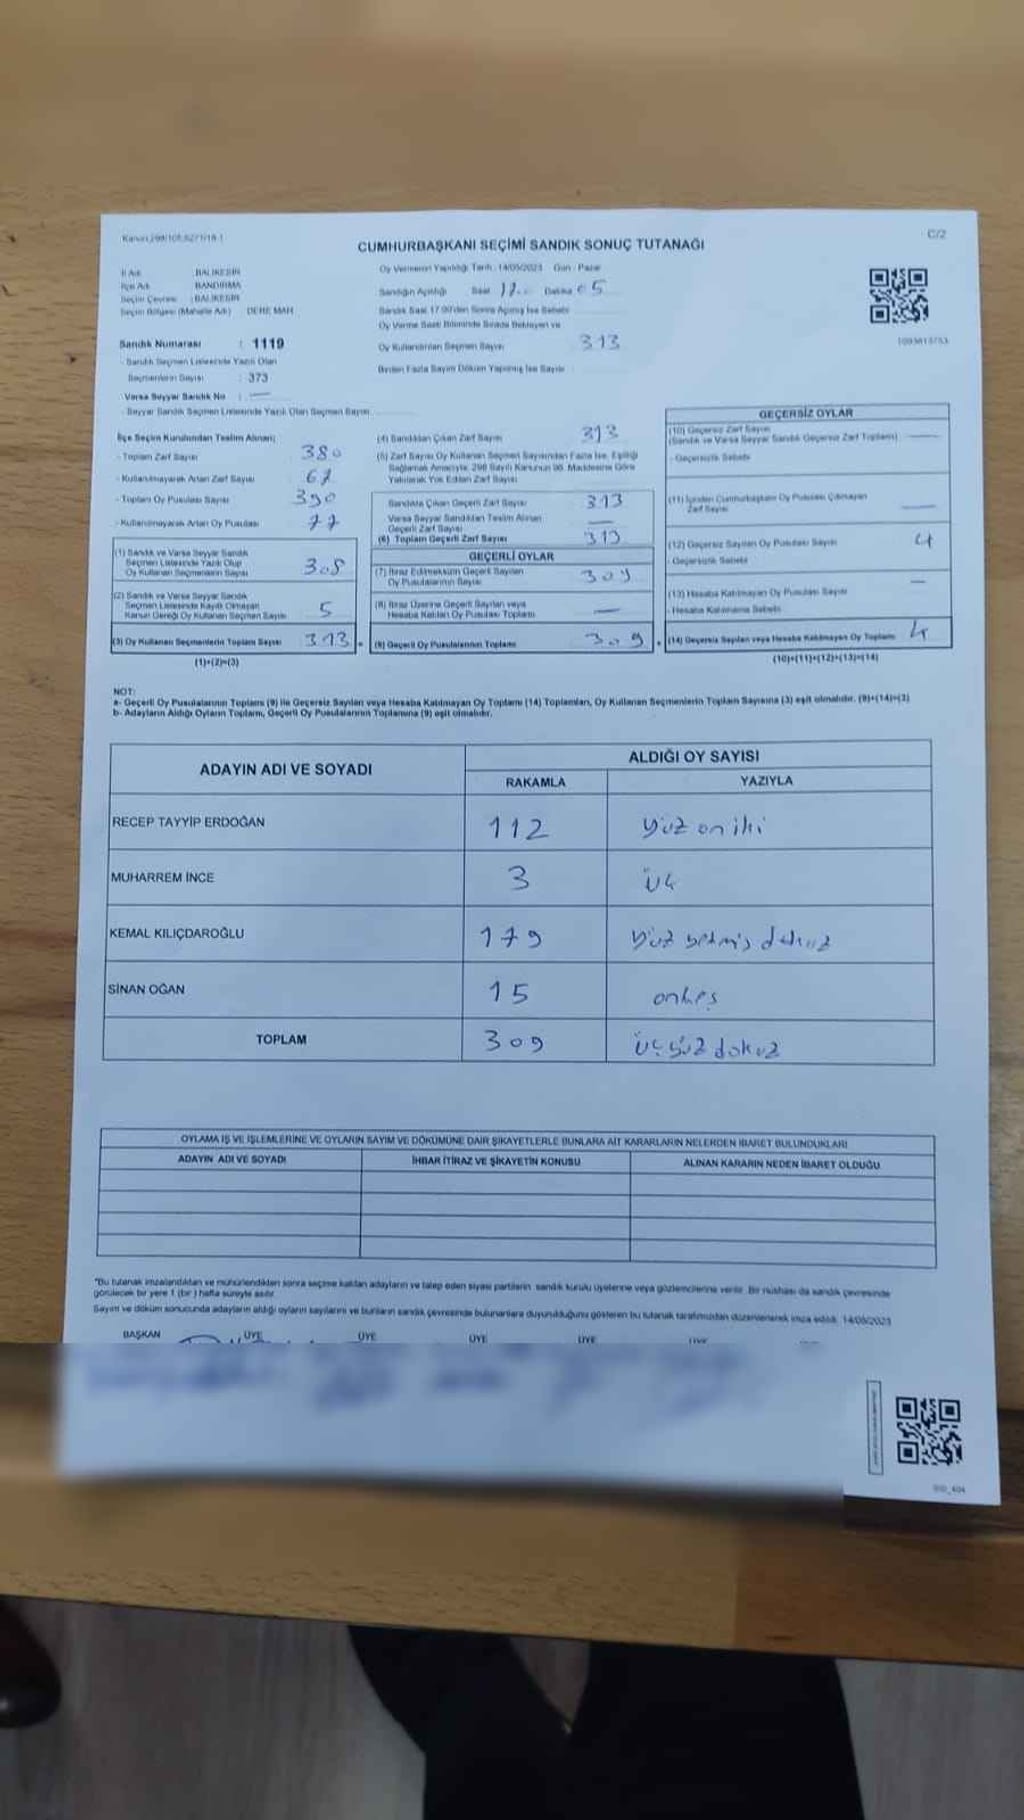 Kanun:298/105,6271/18-1
C/2
CUMHURBAŞKANI SEÇİMİ SANDIK SONUÇ TUTANAĞI
İl Adı : BALIKESİR
İlçe Adı : BANDIRMA
Seçim Çevresi : BALIKESİR
Seçim Bölgesi (Mahalle Adı) : DERE MAH.
Sandık Numarası : 1119
- Sandık Seçmen Listesinde Yazılı Olan
Seçmenlerin Sayısı : 373
Varsa Seyyar Sandık No : —
- Seyyar Sandık Seçmen Listesinde Yazılı Olan Seçmen Sayısı
Oy Vermenin Yapıldığı Tarih : 14/05/2023 Gün : Pazar
Sandığın Açıldığı Saat 17.. Dakika 05
Sandık Saat 17.00'den Sonra Açılmış İse Sebebi
Oy Verme Saati Bitiminde Sırada Bekleyen ve
Oy Kullandırılan Seçmen Sayısı 313
Birden Fazla Sayım Döküm Yapılmış İse Sayısı
İlçe Seçim Kurulundan Teslim Alınan;
- Toplam Zarf Sayısı 380
- Kullanılmayarak Artan Zarf Sayısı 67
- Toplam Oy Pusulası Sayısı 390
- Kullanılmayarak Artan Oy Pusulası 77
(1) Sandık ve Varsa Seyyar Sandık
Seçmen Listesinde Yazılı Olup
Oy Kullanan Seçmenlerin Sayısı 308
(2) Sandık ve Varsa Seyyar Sandık
Seçmen Listesinde Kayıtlı Olmayan
Kanun Gereği Oy Kullanan Seçmenlerin Sayısı 5
(3) Oy Kullanan Seçmenlerin Toplam Sayısı 313 =
(1)+(2)=(3)
(4) Sandıktan Çıkan Zarf Sayısı 313
(5) Zarf Sayısı Oy Kullanan Seçmen Sayısından Fazla İse, Eşitliği
Sağlamak Amacıyla, 298 Sayılı Kanunun 98. Maddesine Göre
Yakılarak Yok Edilen Zarf Sayısı
Sandıkta Çıkan Geçerli Zarf Sayısı 313
Varsa Seyyar Sandıktan Teslim Alınan
Geçerli Zarf Sayısı —
(6) Toplam Geçerli Zarf Sayısı 313
GEÇERLİ OYLAR
(7) İtiraz Edilmeksizin Geçerli Sayılan
Oy Pusulalarının Sayısı 309
(8) İtiraz Üzerine Geçerli Sayılan veya
Hesaba Katılan Oy Pusulası Toplamı —
(9) Geçerli Oy Pusulalarının Toplamı 309 +
GEÇERSİZ OYLAR
(10) Geçersiz Zarf Sayısı
(Sandık ve Varsa Seyyar Sandık Geçersiz Zarf Toplamı) —
- Geçersizlik Sebebi
(11) İçinden Cumhurbaşkanı Oy Pusulası Çıkmayan
Zarf Sayısı —
(12) Geçersiz Sayılan Oy Pusulası Sayısı 4
- Geçersizlik Sebebi
(13) Hesaba Katılmayan Oy Pusulası Sayısı —
- Hesaba Katılmama Sebebi
(14) Geçersiz Sayılan veya Hesaba Katılmayan Oy Toplamı 4
(10)+(11)+(12)+(13)=(14)
NOT:
a- Geçerli Oy Pusulalarının Toplamı (9) ile Geçersiz Sayılan veya Hesaba Katılmayan Oy Toplamı (14) Toplamları, Oy Kullanan Seçmenlerin Toplam Sayısına (3) eşit olmalıdır. (9)+(14)=(3)
b- Adayların Aldığı Oyların Toplamı, Geçerli Oy Pusulalarının Toplamına (9) eşit olmalıdır.
ADAYIN ADI VE SOYADI
ALDIĞI OY SAYISI
RAKAMLA YAZIYLA
RECEP TAYYİP ERDOĞAN 112 yüz on iki
MUHARREM İNCE 3 üç
KEMAL KILIÇDAROĞLU 179 yüz yetmiş dokuz
SİNAN OĞAN 15 onbeş
TOPLAM 309 üçyüz dokuz
OYLAMA İŞ VE İŞLEMLERİNE VE OYLARIN SAYIM VE DÖKÜMÜNE DAİR ŞİKAYETLERLE BUNLARA AİT KARARLARIN NELERDEN İBARET BULUNDUKLARI
ADAYIN ADI VE SOYADI İHBAR İTİRAZ VE ŞİKAYETİN KONUSU ALINAN KARARIN NEDEN İBARET OLDUĞU
*Bu tutanak imzalandıktan ve mühürlendikten sonra seçime katılan adayların ve talep eden siyasi partilerin sandık kurulu üyelerine veya gözlemcilerine verilir. Bir nüshası da sandık çevresinde
görülecek bir yere 1 (bir) hafta süreyle asılır.
Sayım ve döküm sonucunda adayların aldığı oyların sayılarını ve bunların sandık çevresinde bulunanlara duyurulduğunu gösteren bu tutanak tarafımızdan düzenlenerek imza edildi. 14/05/2023
BAŞKAN ÜYE ÜYE ÜYE ÜYE